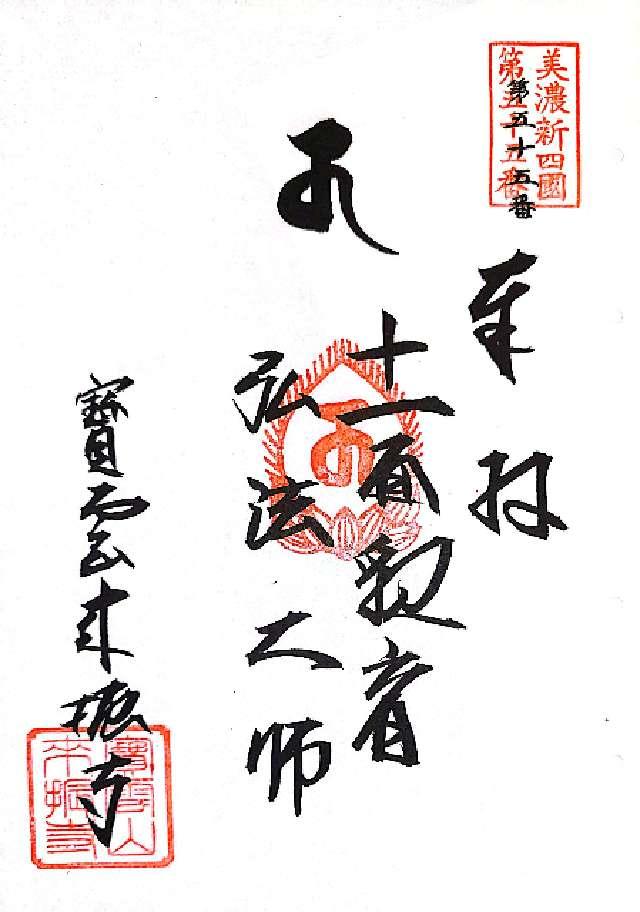 美濃新四國
第五十五番
第五十五番
奉拝
十一面観音
弘法大師
寶雲来振寺
寶雲山
来振寺